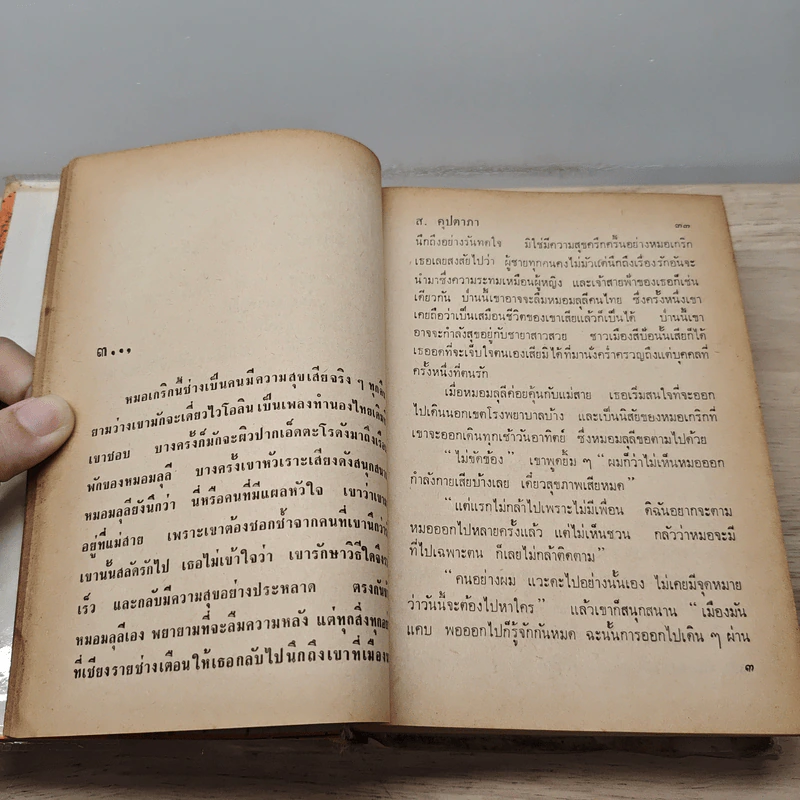 ๓...
หมอเกริกนี้ช่างเป็นคนมีความสุขเสียจริง ๆ
ยามว่างเขามักจะเดี่ยวไวโอลินเป็นเพลงทำนองไทยเดิม
เขาชอบ บางครั้งก็มักจะผิวปากเอ็ดตะโรดังมาถึง
พักของหมอมลุลี บางครั้งเขาหัวเราะเสียงดังสนุกสนาน
หมอมลุลียังนึกว่า นี่หรือคนที่มีแผลหัวใจ เขาว่า
อยู่ที่แม่สาย เพราะเขาต้องชอกช้ำจากคนที่เขานึก
เขานั้นสลัดรักไป เธอไม่เข้าใจว่า เขารักษาวิธีใดจึง
เร็ว และกลับมีความสุขอย่างประหลาด ตรงกัน
หมอมลุลีเอง พยายามที่จะลืมความหลัง แต่ทุกสิ่งทุก
ที่เชียงรายช่างเตือนให้เธอกลับไปนึกถึงเขาที่เมือง
ส. คุปตาภา
๓๓
นึกถึงอย่างรันทดใจ มิใช่มีความสุขครึกครื้นอย่างหมอเกริก
เธอเลยสงสัยไปว่า ผู้ชายทุกคนคงไม่มัวแต่นึกถึงเรื่องรักอันจะ
นำมาซึ่งความระทมเหมือนผู้หญิง และเจ้าสายฟ้าของเธอก็เช่น
เดียวกัน ป่านนี้เขาอาจจะลืมหมอมลุลีคนไทย ซึ่งครั้งหนึ่งเขา
เคยถือว่าเป็นเสมือนชีวิตของเขาเสียแล้วก็เป็นได้ ป่านนี้เขา
อาจจะกำลังสุขอยู่กับชายาสาวสวย ชาวเมืองสีป้อนั้นเสียก็ได้
เธออดที่จะเจ็บใจตนเองเสียมิได้ที่มานั่งคร่ำครวญถึงแต่บุคคลที่
ครั้งหนึ่งที่ตนรัก
เมื่อหมอมลุลีค่อยคุ้นกับแม่สาย เธอเริ่มสนใจที่จะออก
ไปเดินนอกเขตโรงพยาบาลบ้าง และเป็นนิสัยของหมอเกริกที่
เขาจะออกเดินทุกเช้าวันอาทิตย์ ซึ่งหมอมลุลีขอตามไปด้วย
“ไม่ขัดข้อง” เขาพูดยิ้ม ๆ “ผมก็ว่าไม่เห็นหมอออก
กำลังกายเสียบ้างเลย เดี๋ยวสุขภาพเสียหมด”
“แต่แรกไม่กล้าไปเพราะไม่มีเพื่อน ดิฉันอยากจะตาม
หมอออกไปหลายครั้งแล้ว แต่ไม่เห็นชวน กลัวว่าหมอจะมี
ที่ไปเฉพาะตน ก็เลยไม่กล้าติดตาม”
“คนอย่างผม แวะคะไปอย่างนั้นเอง ไม่เคยมีจุดหมาย
ว่าวันนี้จะต้องไปหาใคร” แล้วเขาก็สนุกสนาน “เมืองมัน
แคบ พอออกไปก็รู้จักกันหมด ฉะนั้นการออกไปเดิน ๆ ผ่าน
๓